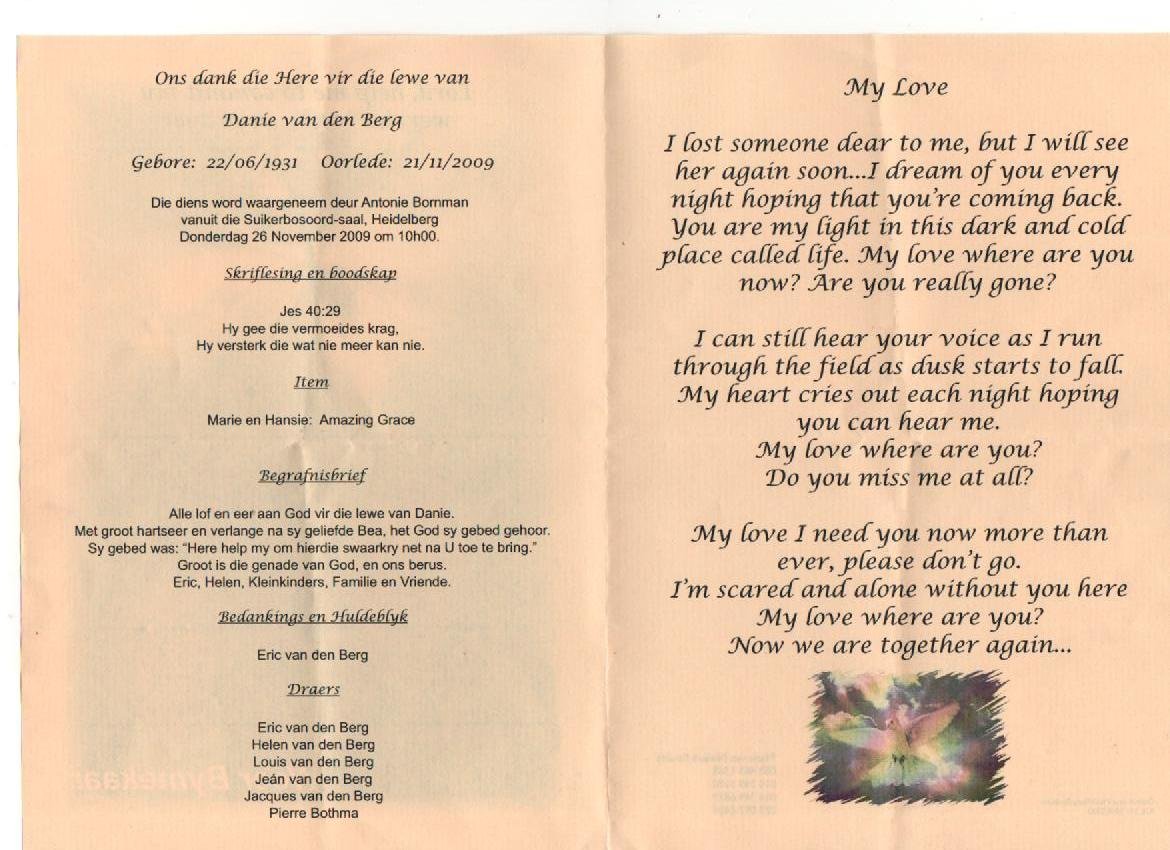 Ons dank die Here vir die lewe van
Danie van den Berg
Gebore: 22/06/1931 Oorlede: 21/11/2009
Die diens word waargeneem deur Antonie Bornman
vanuit die Suikerbosoord-saal, Heidelberg
Donderdag 26 November 2009 om 10h00.
Skriflesing en boodskap
Jes 40:29
Hy gee die vermoeides krag,
Hy versterk die wat nie meer kan nie.
Item
Marie en Hansie: Amazing Grace
Begrafnisbrief
Alle lof en eer aan God vir die lewe van Danie.
Met groot hartseer en verlange na sy geliefde Bea, het God sy gebed gehoor.
Sy gebed was: "Here help my om hierdie swaarkry net na U toe te bring."
Groot is die genade van God, en ons berus.
Eric, Helen, Kleinkinders, Familie en Vriende.
Bedankings en Huldeblyk
Eric van den Berg
Draers
Eric van den Berg
Helen van den Berg
Louis van den Berg
Jeán van den Berg
Jacques van den Berg
Pierre Bothma
My Love
I lost someone dear to me, but I will see
her again soon...I dream of you every
night hoping that you're coming back.
You are my light in this dark and cold
place called life. My love where are you
now? Are you really gone?
I can still hear your voice as I run
through the field as dusk starts to fall.
My heart cries out each night hoping
you can hear me.
My love where are you?
Do you miss me at all?
My love I need you now more than
ever, please don't go.
I'm scared and alone without you here
My love where are you?
Now we are together again...